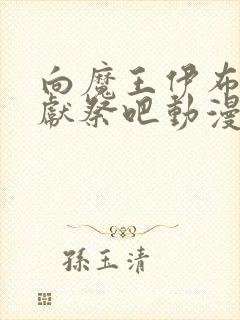 向魔王伊布
獻祭吧動漫
孫玉清